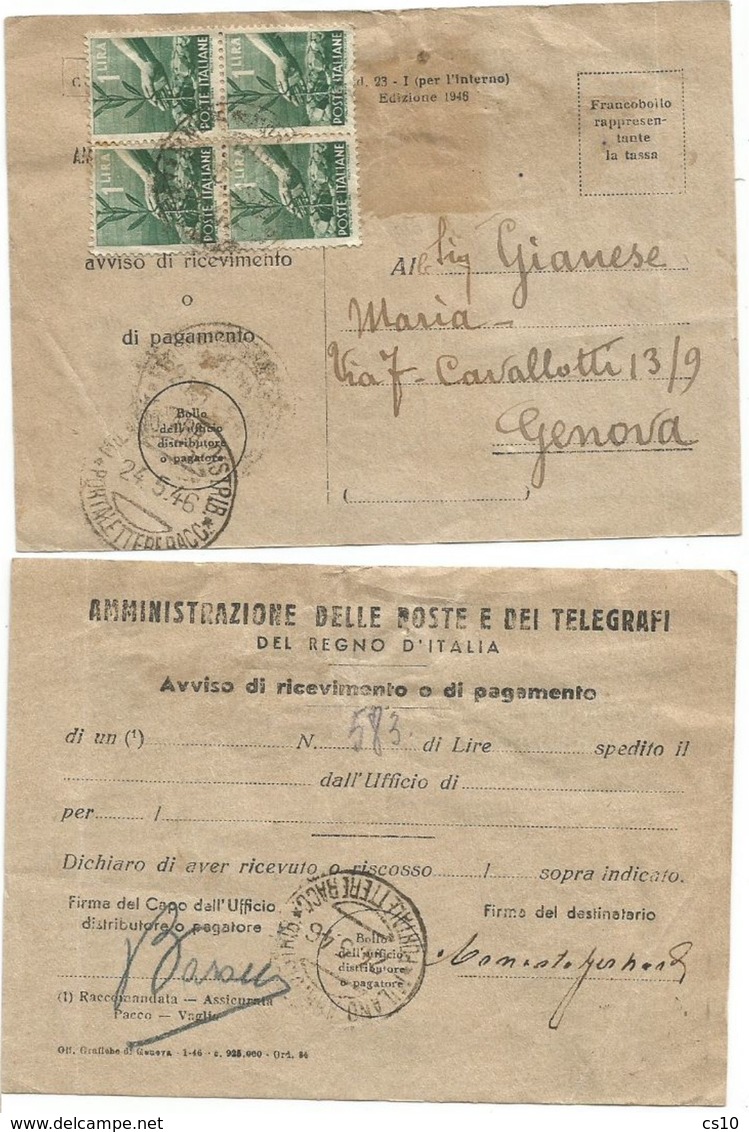 1 LIRA POSTE ITALIANE 1 LIRA POSTE ITALIANE
1 LIRA POSTE ITALIANE 1 LIRA POSTE ITALIANE
23 - I (per l'interno)
Edizione 1946
Francobollo
rappresen-
tante
la tassa
avviso di ricevimento
o
di pagamento
Al Sig Gianese
Maria -
Via F. Cavallotti 13/9
Genova
Bollo
dell'ufficio
distributore
o pagatore
24.5.46
PORTALETTERE RACC.
DISTRIB.
AMMINISTRAZIONE DELLE POSTE E DEI TELEGRAFI
DEL REGNO D'ITALIA
Avviso di ricevimento o di pagamento
di un (¹) N. 583 di Lire spedito il
dall'Ufficio di
per /
Dichiaro di aver ricevuto o riscosso / sopra indicato.
Firma del Capo dell'Ufficio
distributore o pagatore
Firma del destinatario
PORTALETTERE RACC.
MILANO
46
Bollo
dell'ufficio
distributore
o pagatore
(1) Raccomandata — Assicurata
Pacco — Vaglia
Off. Grafiche di Genova - 1-46 - c. 925.000 - Ord. 84
cs10